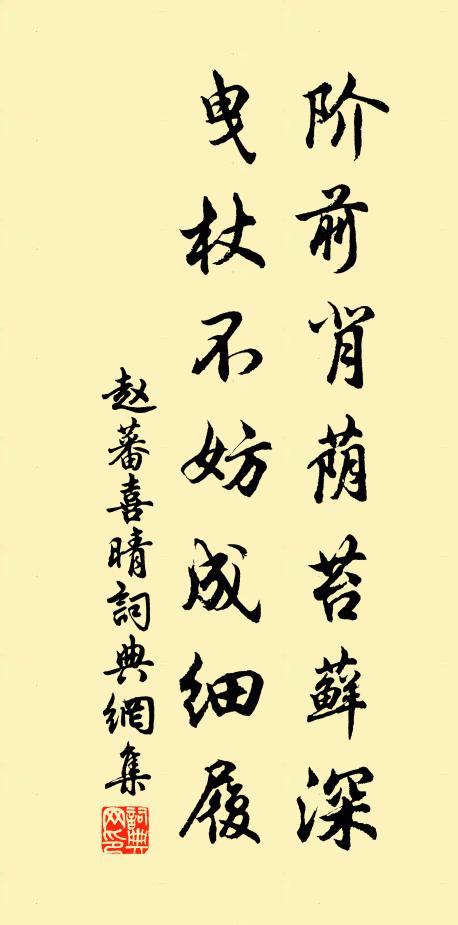 阶前背荫苔藓深
曳杖不妨成细履
赵蕃喜晴詞典網集
詞典網印